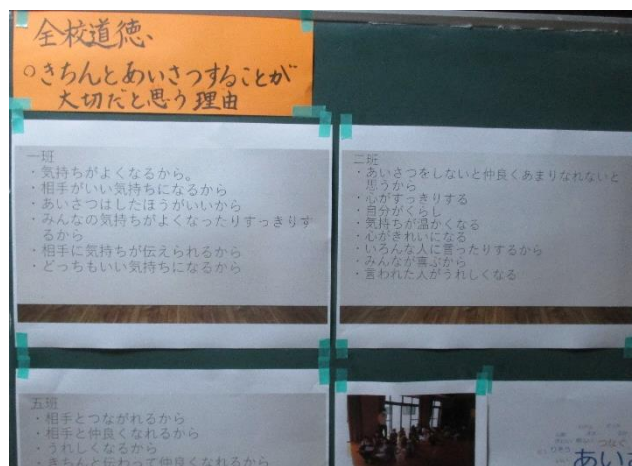 全校道徳、
○きちんとあいさつすることが
大切だと思う理由
一班
・気持ちがよくなるから。
・相手がいい気持ちになるから
・あいさつはしたほうがいいから
・みんなの気持ちがよくなったりすっきりす
るから
・相手に気持ちが伝えられるから
・どっちもいい気持ちになるから
二班
・あいさつをしないと仲良くあまりなれないと
思うから
・心がすっきりする
・自分がくらし
・気持ちが温かくなる
・心がきれいになる
・いろんな人に言ったりするから
・みんなが喜ぶから
・言われた人がうれしくなる
五班
・相手とつながれるから
・相手と仲良くなれるから
・うれしくなるから
・きちんと伝わって仲良くなれるから
つなぐ
あい